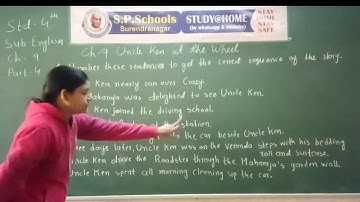 Std - 4th
Sub - English
Ch - 9
Part - 4
S.P.Schools
Surendranagar
STUDY@HOME
(by whatsapp & youtube)
STAY HOME
STAY SAFE
Ch-9 Uncle Ken at the Wheel
Number these sentences to get the correct sequence of the story.
Ken nearly ran over Crazy.
Maharaja was delighted to see Uncle Ken.
Ken joined the driving school.
station.
the car beside Uncle Ken.
days later, Uncle Ken was on the veranda steps with his bedding roll and suitcase.
Ken drove the Roadster through the Maharaja's garden wall
Uncle Ken spent all morning cleaning up the car.